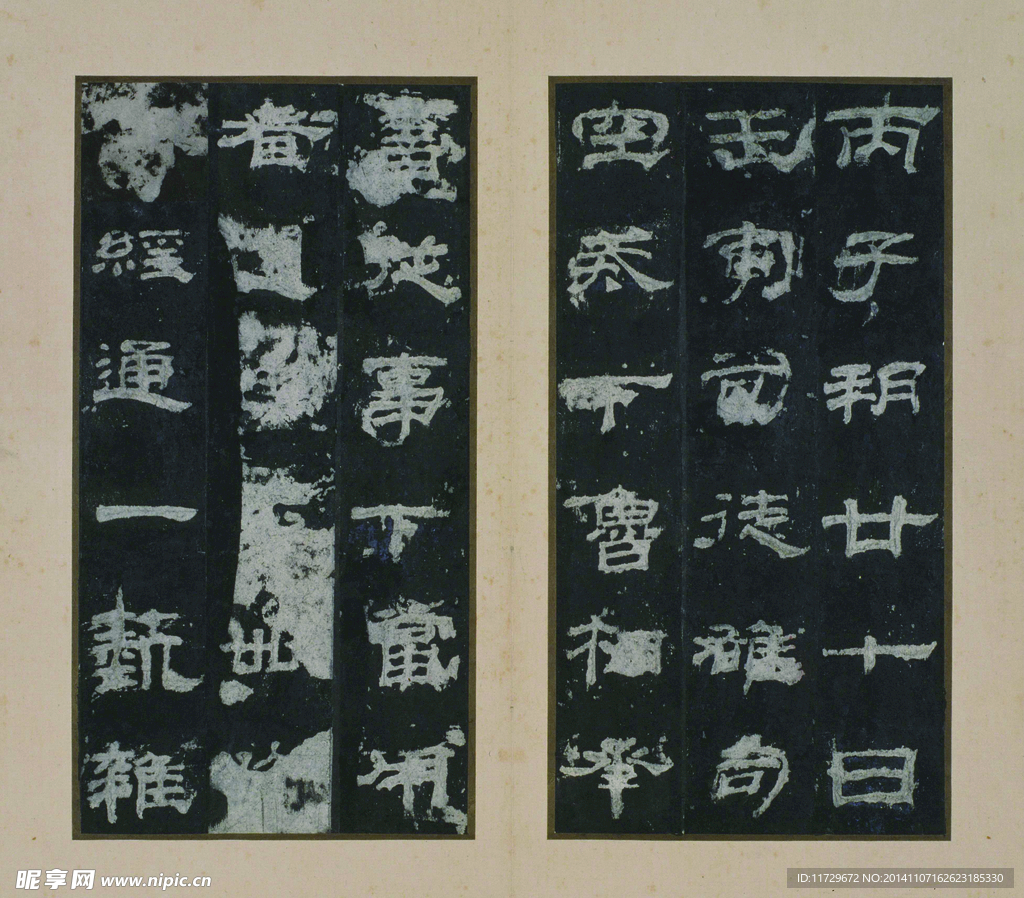 丙子朔廿七日
壬寅司徒雄司
空戒下魯相承
書從事下當用
者卌
經通一藝雜
昵享网 www.nipic.cn
ID:11729672 NO:20141107162623185330